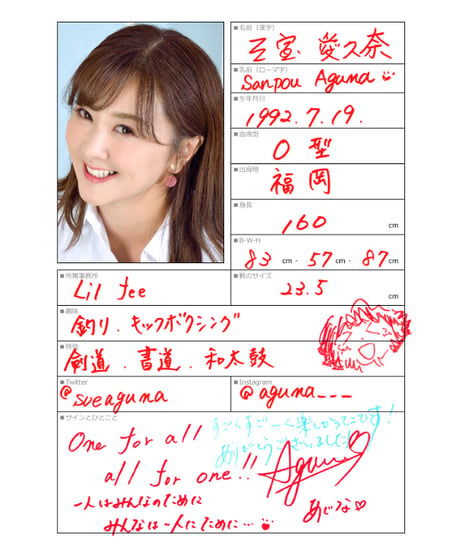 ■名前（漢字）
三宝 愛久奈
■名前（ローマ字）
Sanpou Aguna
■生年月日
1992.7.19.
■血液型
O型
■出身地
福岡
■身長
160 cm
■B-W-H
83 cm - 57 cm - 87 cm
■所属事務所
Lil fee
■靴のサイズ
23.5 cm
■趣味
釣り.キックボクシング
■特技
剣道.書道.和太鼓
■Twitter
@sveaguna
■Instagram
@aguna___
■サインとひとこと
One for all
all for one!!
一人はみんなのために
みんなは一人にために…
すごくすご〜く楽しかったです!
ありがとうございました
Aguna
あぐな